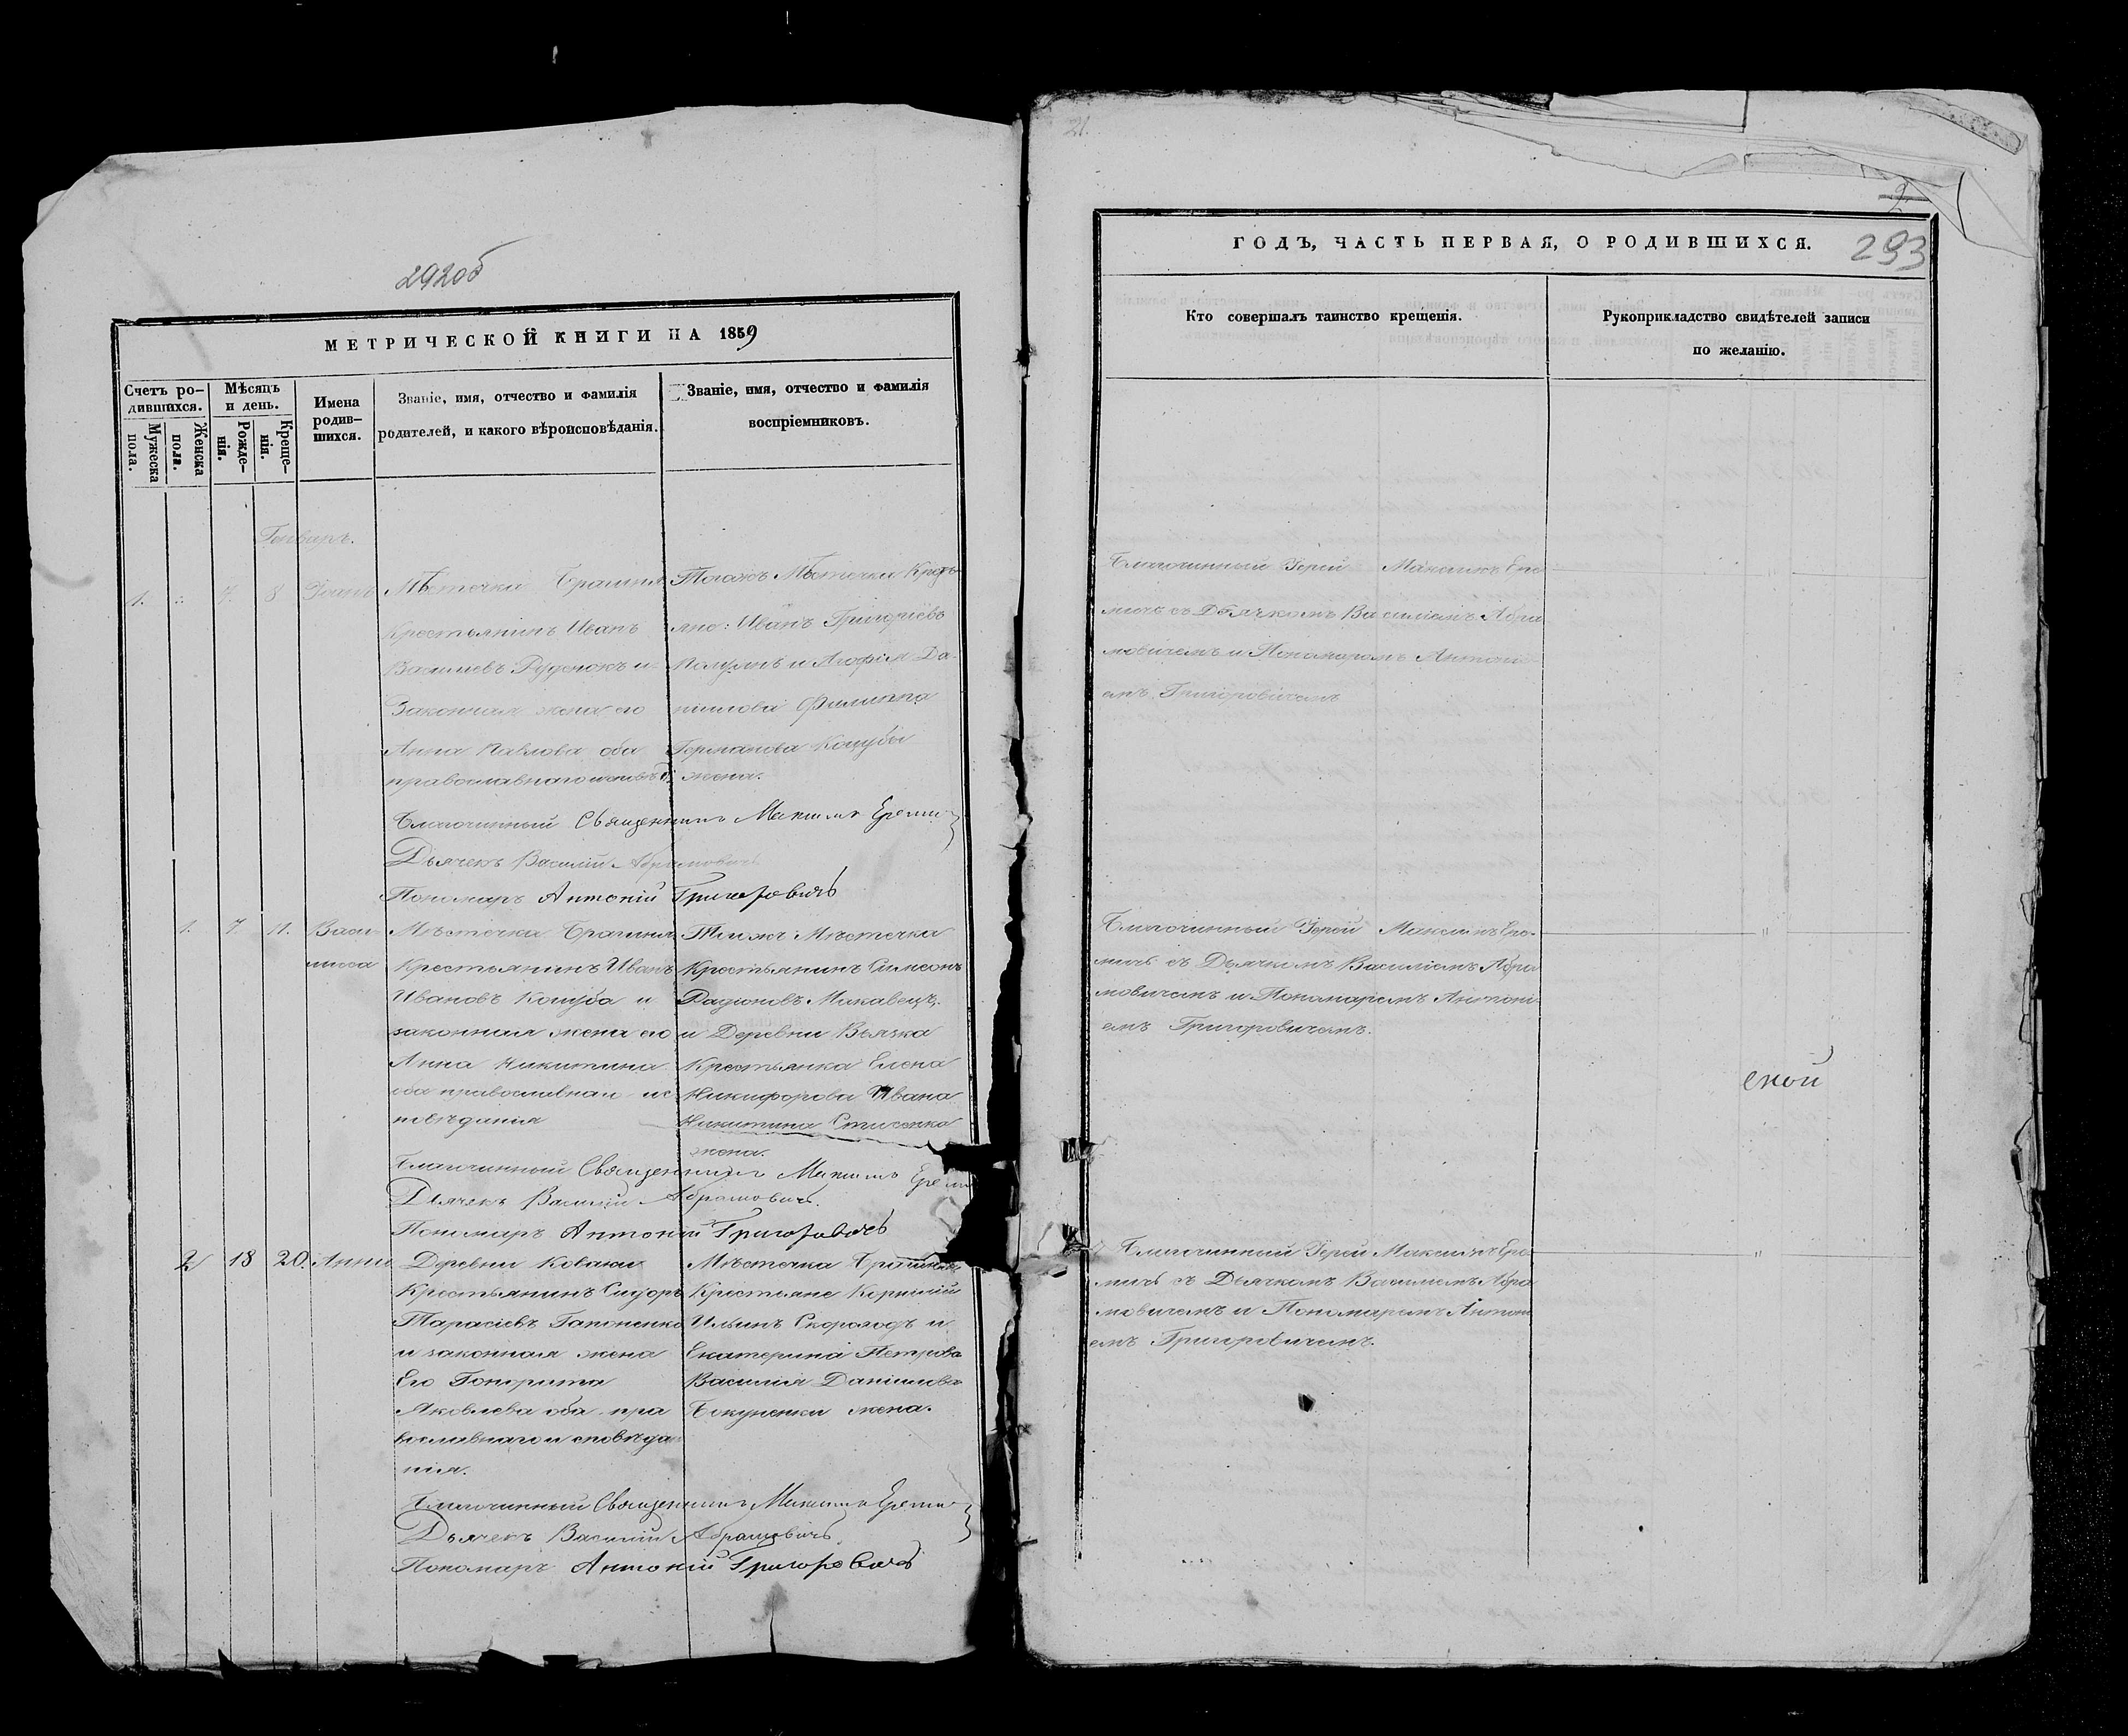 292об
МЕТРИЧЕСКОЙ КНИГИ НА 1859
Счетъ ро-
дившихся.
Мужеска
пола.
Женска
пола.
Мѣсяцъ
и день.
Рожде-
нія.
Креще-
нія.
Имена
родив-
шихся.
Званіе, имя, отчество и фамилія
родителей, и какого вѣроисповѣданія.
Званіе, имя, отчество и фамилія
воспріемниковъ.
Генварь.
1. 7. 8 Іоаннъ
Мѣстечка Брагина
Крестьянинъ Иванъ
Васильевъ и
Законная жена его
Анна Павлова оба
православнаго
Тогожъ Мѣстечка Кресть-
яне: Иванъ Григорьевъ
и Агафія Да-
нилова Филиппа
Германова Коцубы
жена.
Благочинный Священникъ Максимъ Ереми
Дьячекъ Василій Абрамовичъ
Пономарь Антоній Григоровичъ
1. 7. 11. Васи-
лисса
Мѣстечка Брагина
Крестьянинъ Иванъ
Ивановъ Коцуба и
законная жена его
Анна Никитина
оба православнаго ис-
повѣданія
Тогожъ Мѣстечка
Крестьянинъ Симеонъ
Радіоновъ Макавецъ,
и Деревни Вьязка
Крестьянка Елена
Никифорова Ивана
Никитина
жена.
Благочинный Священникъ Максимъ Ереми
Дьячекъ Василій Абрамовичъ.
Пономарь Антоній Григоровичъ
2 18 20. Анна
Деревни Коваки
Крестьянинъ Сидоръ
Тарасіевъ Гапоненко
и законная жена
Его Гонората
Яковлева оба пра
вославнаго исповѣда-
нія.
Мѣстечка Брагина
Крестьяне Корнилій
Ильинъ Скороходъ и
Екатерина Петрова
Василія Данилова
Бокуненки жена.
Благочинный Священникъ Максимъ Ереми
Дьячекъ Василій Абрамовичъ
Пономарь Антоній Григоровичъ
21.
2
293
ГОДЪ, ЧАСТЬ ПЕРВАЯ, О РОДИВШИХСЯ.
Кто совершалъ таинство крещенія.
Рукоприкладство свидѣтелей записи
по желанію.
Благочинный Іерей Максимъ Ере
мичъ съ Дьячкомъ Василіемъ Абра
мовичемъ и Пономаремъ Антоні-
емъ Григоровичемъ
Благочинный Іерей Максимъ Ере-
мичъ съ Дьячкомъ Василіемъ Абра
мовичемъ и Пономаремъ Антоні-
емъ Григоровичемъ.
ской
Благочинный Іерей Максимъ Ере
мичъ съ Дьячкомъ Василіемъ Абра
мовичемъ и Пономаремъ Антоні
емъ Григоровичемъ.